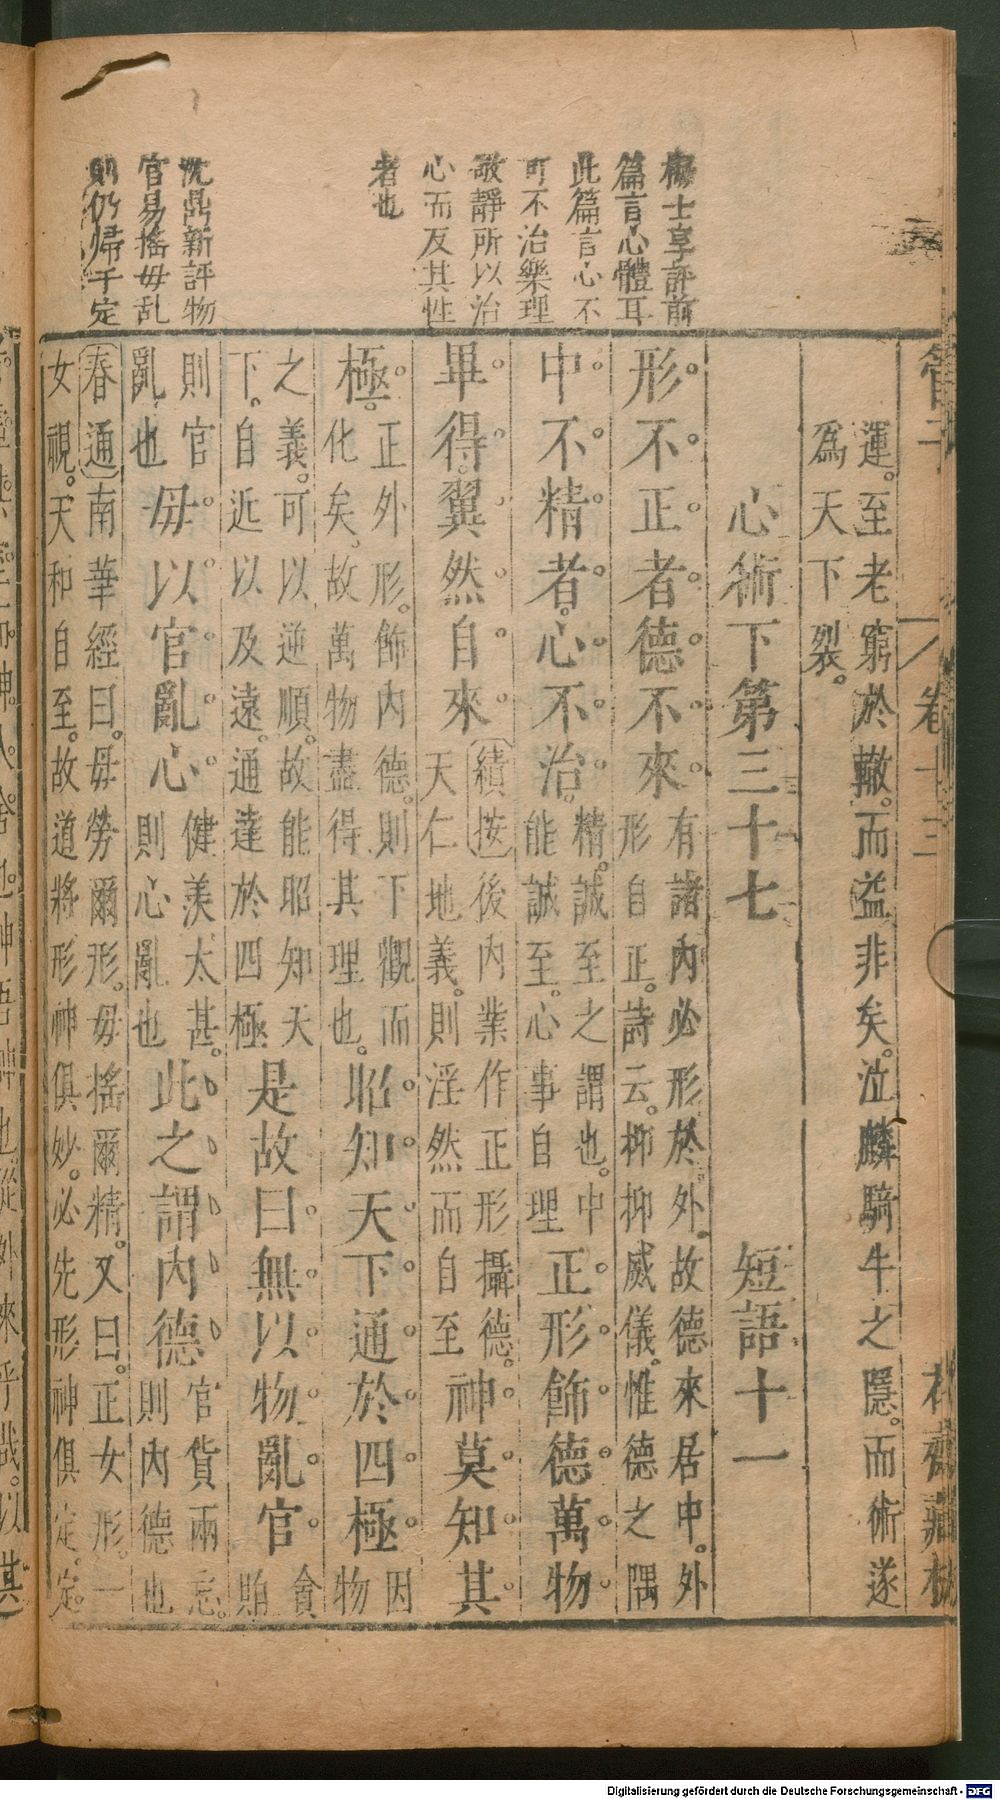 楊士享評前
篇言心體耳
此篇言心不
可不治樂理
敬靜所以治
心而反其性
者也
沈鼎新評物
官易搖毋乱
則仍歸于定
管子
卷十三
運。至老窮於轍。而益非矣。泣麟騎牛之隱。而術遂
爲天下裂。
心術下第三十七 短語十一
形不正者德不來有諸內必形於外。故德來居中。外
形自正。詩云。抑抑威儀。惟德之隅
中不精者。心不治。精。誠至之謂也。中
能誠至。心事自理正形飾德萬物
畢得。翼然自來續按後內業作正形攝德。
天仁地義。則淫然而自至神莫知其
極。正外形。飾內德。則下觀而
化矣。故萬物盡得其理也。昭知天下通於四極因
物
之義。可以逆順。故能昭知天
下。自近以及遠。通達於四極是故曰無以物亂官貪
賄
則官
亂也毋以官亂心健羨太甚。
則心亂也此之謂內德官貨兩忘。
則內德也
春通南華經曰。毋勞爾形。毋搖爾精。又曰。正女形。一
女視。天和自至。故道將形神俱妙。必先形神俱定。定
Digitalisierung gefördert durch die Deutsche Forschungsgemeinschaft - DFG